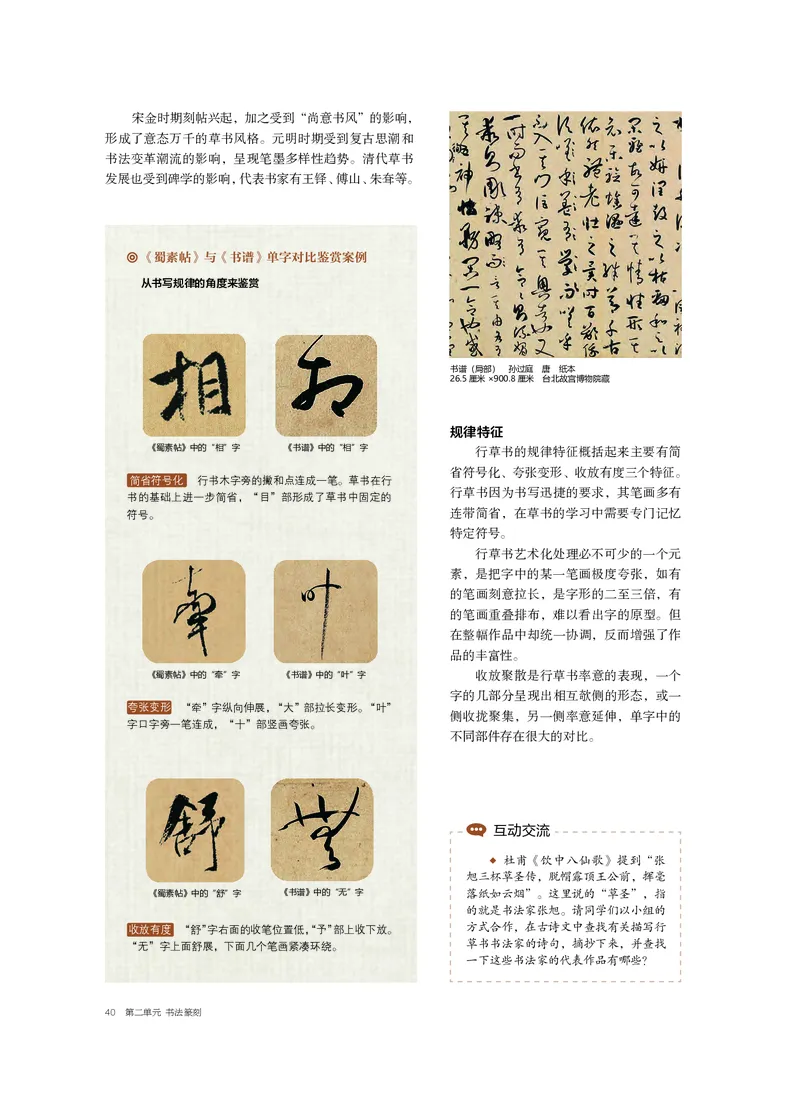 宋金时期刻帖兴起，加之受到“尚意书风”的影响，
形成了意态万千的草书风格。元明时期受到复古思潮和
书法变革潮流的影响，呈现笔墨多样性趋势。清代草书
发展也受到碑学的影响，代表书家有王铎、傅山、朱耷等。
《蜀素帖》与《书谱》单字对比鉴赏案例
从书写规律的角度来鉴赏
相
相
《蜀素帖》中的“相”字
《书谱》中的“相”字
简省符号化 行书木字旁的撇和点连成一笔。草书在行
书的基础上进一步简省，“目”部形成了草书中固定的
符号。
牵
叶
《蜀素帖》中的“牵”字
《书谱》中的“叶”字
夸张变形 “牵”字纵向伸展，“大”部拉长变形。“叶”
字口字旁一笔连成，“十”部竖画夸张。
舒
无
《蜀素帖》中的“舒”字
《书谱》中的“无”字
收放有度 “舒”字右面的收笔位置低，“予”部上收下放。
“无”字上面舒展，下面几个笔画紧凑环绕。
书谱（局部） 孙过庭 唐 纸本
26.5 厘米 ×900.8 厘米 台北故宫博物院藏
规律特征
行草书的规律特征概括起来主要有简
省符号化、夸张变形、收放有度三个特征。
行草书因为书写迅捷的要求，其笔画多有
连带简省，在草书的学习中需要专门记忆
特定符号。
行草书艺术化处理必不可少的一个元
素，是把字中的某一笔画极度夸张，如有
的笔画刻意拉长，是字形的二至三倍，有
的笔画重叠排布，难以看出字的原型。但
在整幅作品中却统一协调，反而增强了作
品的丰富性。
收放聚散是行草书率意的表现，一个
字的几部分呈现出相互欹侧的形态，或一
侧收拢聚集，另一侧率意延伸，单字中的
不同部件存在很大的对比。
互动交流
◆ 杜甫《饮中八仙歌》提到“张
旭三杯草圣传，脱帽露顶王公前，挥毫
落纸如云烟”。这里说的“草圣”，指
的就是书法家张旭。请同学们以小组的
方式合作，在古诗文中查找有关描写行
草书书法家的诗句，摘抄下来，并查找
一下这些书法家的代表作品有哪些？
40 第二单元 书法篆刻